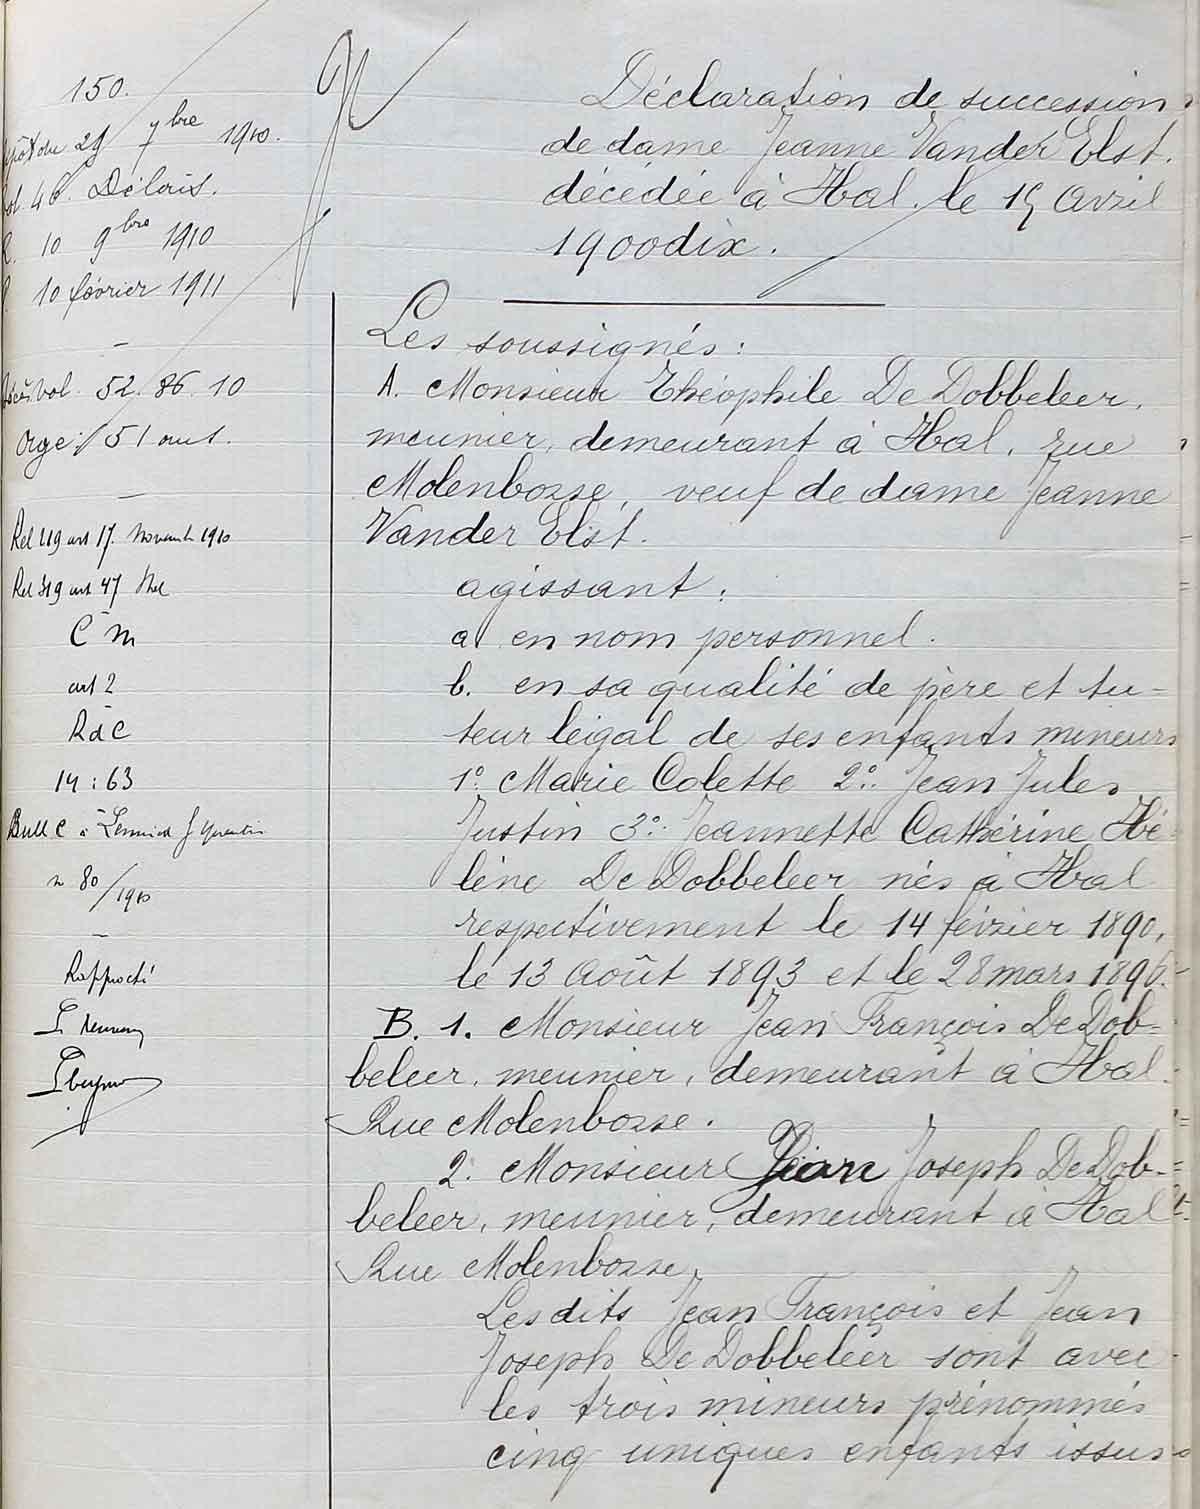 150.
du 29 7bre 1910.
46. Délais.
10 9bre 1910
10 février 1911
vol. 52. 86. 10
Age: 51 ans.
Rel 219 art 17. Novembre 1910
Rel 319 art 47
C m
art 2
R d C
14 : 63
Bull C à
n 80/1910
Déclaration de succession
de dame Jeanne Vander Elst.
décédée à Hal. le 15 Avril
1900dix.
Les soussignés :
A. Monsieur Théophile De Dobbeleer,
meunier, demeurant à Hal, rue
Molenborre, veuf de dame Jeanne
Vander Elst.
agissant :
a en nom personnel.
b. en sa qualité de père et tu-
teur légal de ses enfants mineurs
1° Marie Colette 2° Jean Jules
Justin 3° Jeannette Cathérine Hé-
lène De Dobbeleer nés à Hal
respectivement le 14 février 1890,
le 13 Août 1893 et le 28 mars 1896.
B. 1. Monsieur Jean François De Dob-
beleer, meunier, demeurant à Hal.
Rue Molenborre.
2. Monsieur Jean Joseph De Dob-
beleer, meunier, demeurant à Hal
Rue Molenborre.
Lesdits Jean François et Jean
Joseph De Dobbeleer sont avec
les trois mineurs prénommés
cinq uniques enfants issus